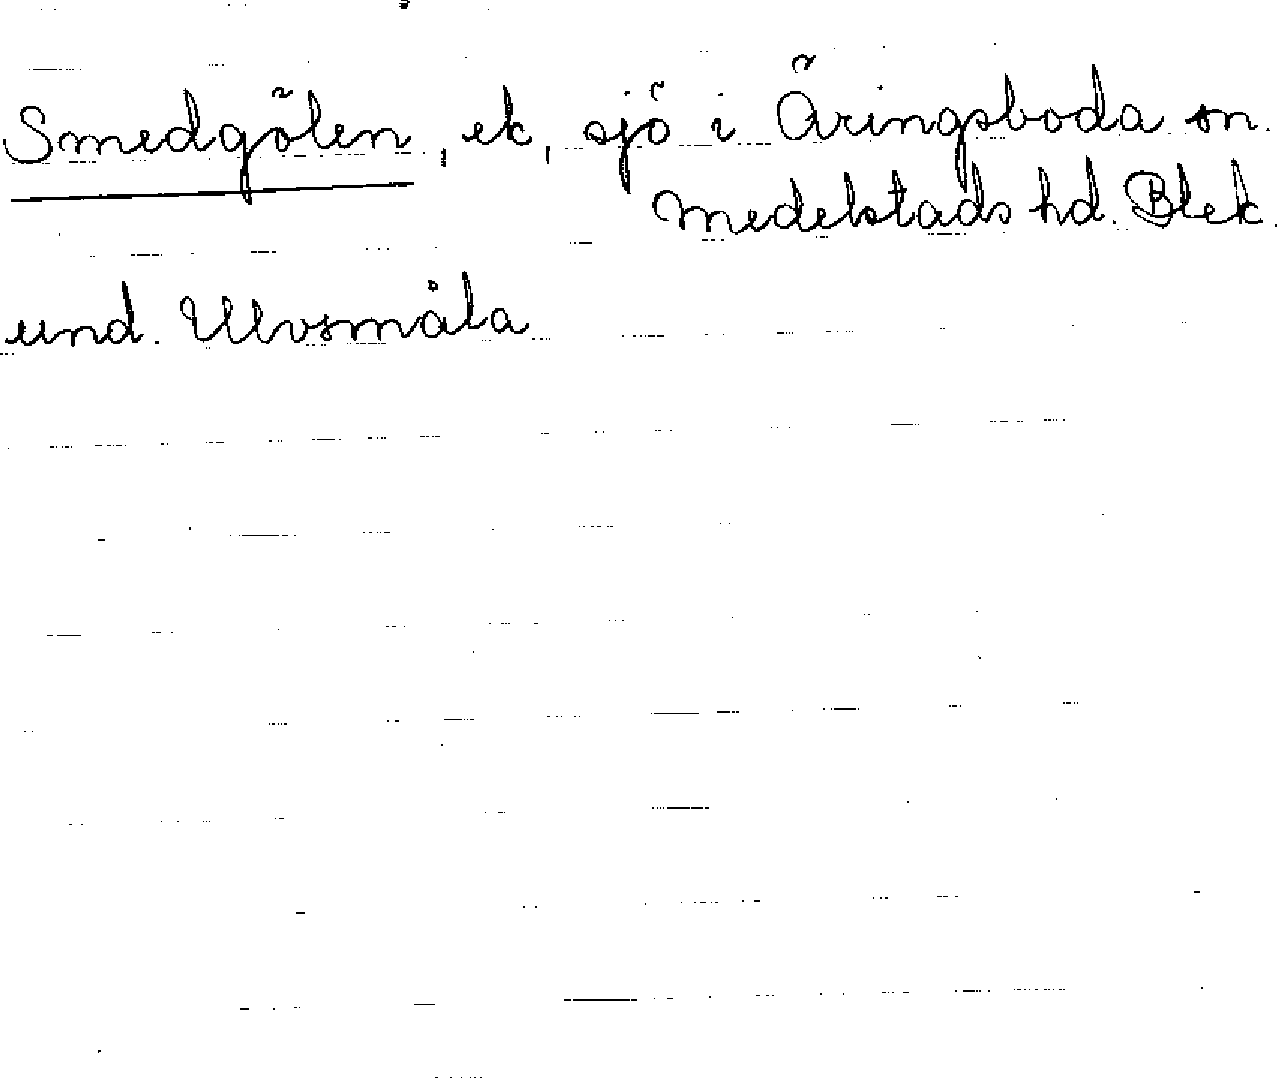 Smedgölen, ek, sjö i Äringsboda sn.
Medelstads hd. Blek.
und. Ulvsmåla